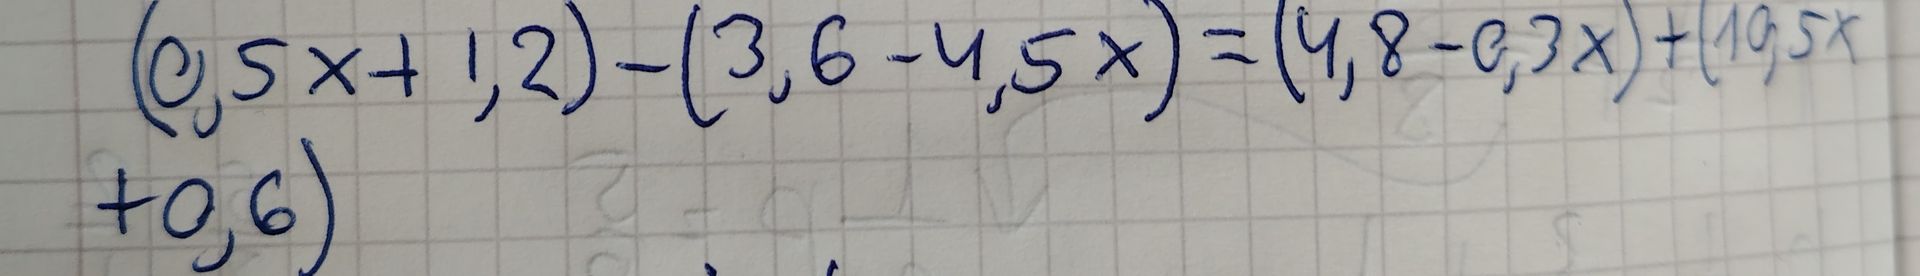 (0,5x+1,2)-(3,6-4,5x)=(4,8-0,3x)+(10,5x
+0,6)